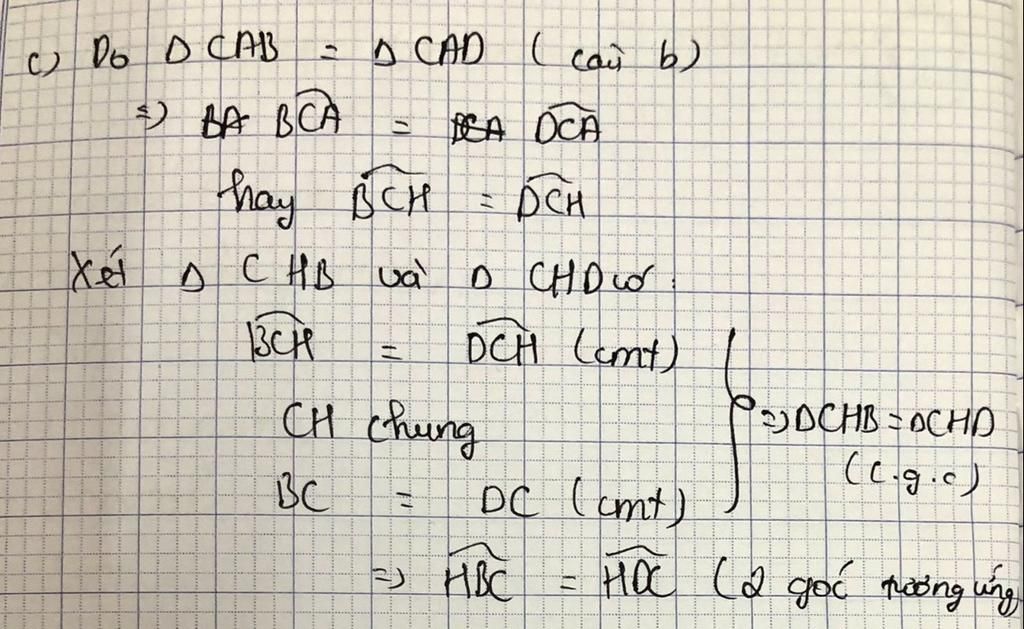 c) Do Δ CAB = Δ CAD ( câu b)
=> BA BCA = BCA DCA
hay BCH = DCH
Xét Δ CHB và Δ CHD có :
BCH = DCH (cmt)
CH chung
BC = DC (cmt)
=> ΔCHB = ΔCHD
(c.g.c)
=> HBC = HDC (2 góc tương ứng